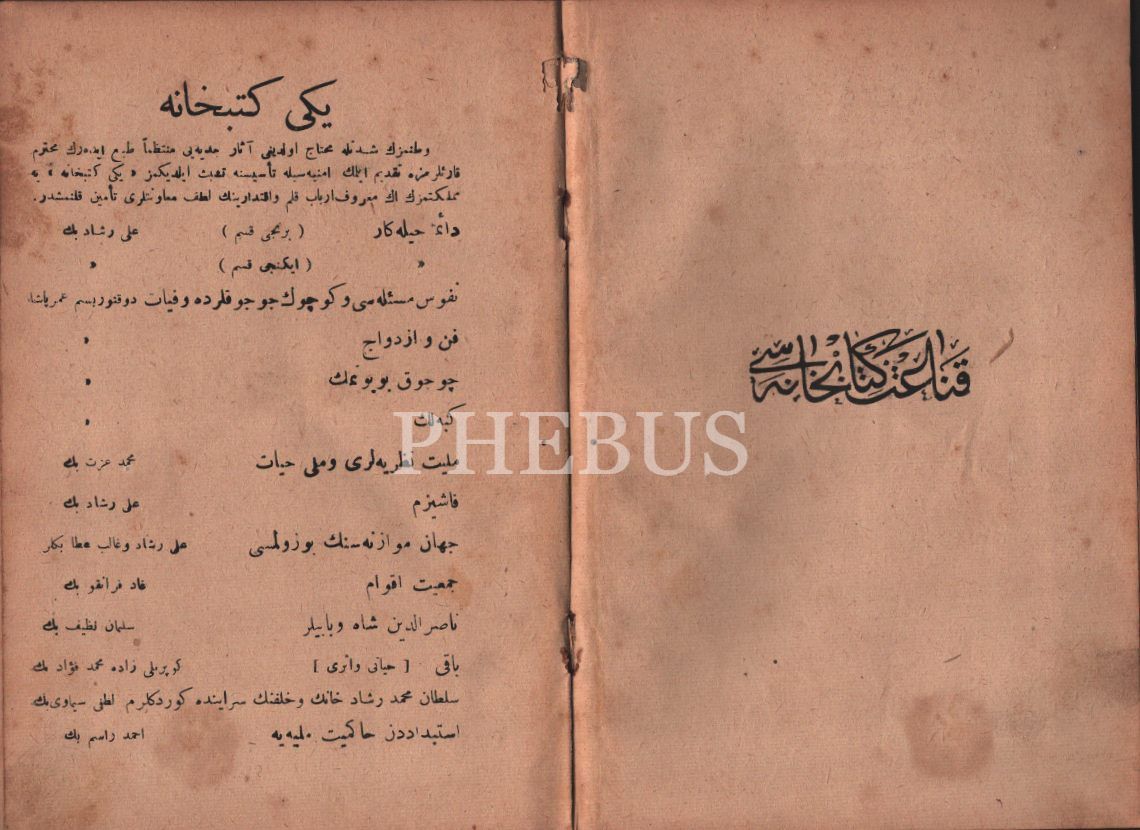 یكی كتبخانه
وطنمزك شدتله محتاج اولدیغی آثار جدیه‌یی منتظماً طبع ایده‌رك محترم
قارئلرمزه تقدیم ایلمك امنیه‌سیله تأسیسنه تشبث ایلدیكمز « یكی كتبخانه » یه
مملكتمزك اك معروف ارباب قلم واقتدارینك لطف معاونتلری تأمین قلنمشدر.
حیله‌كار ( برنجی قسم ) علی رشاد بك
» ( ایكنجی قسم ) »
نفوس مسئله‌سی وكوچوك چوجوقلرده وفیات دوقتور بسیم عمر پاشا
فن و ازدواج »
چوجوق بویوتمك »
»
ملیت نظریه‌لری وملی حیات محمد عزت بك
فاشیزم علی رشاد بك
جهان موازنه‌سنك بوزولمسی علی رشاد وغالب عطا بكلر
جمعیت اقوام فرانقو بك
ناصرالدین شاه وبابیلر سلمان نظیف بك
باقی [ حیاتی واثری ] كوپریلی زاده محمد فؤاد بك
سلطان محمد رشاد خانك وخلفنك سراینده كوردكلرم لطفی سیماوی بك
استبداددن حاكمیت ملیه‌یه احمد راسم بك
قناعت كتابخانه‌سی
PHEBUS